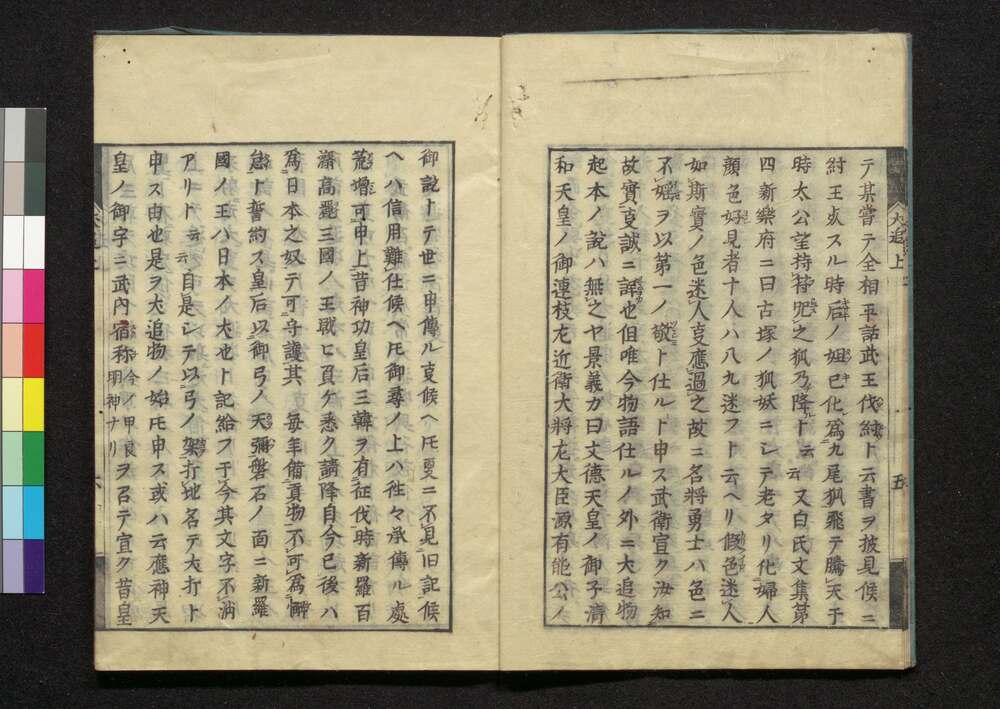 テ其嘗テ全相平話武王伐紂ト云書ヲ披見候ニ
紂王亥スル時后ノ妲己化為九尾狐飛テ騰天于
時太公望持符咒之狐乃降ト云云又白氏文集第
四新樂府ニ曰古塚ノ狐妖ニシテ老タリ化婦人
顔色好見者十人ハ八九迷フト云ヘリ假色迷人
如斯實ノ色迷人支應過之故ニ名将勇士ハ色ニ
不婬ヲ以第一ノ敬ト仕ルト申ス武衛宣ク汝知
故實支誠ニ話也但唯今物語仕ルノ外ニ犬追物
起本ノ說ハ無之ヤ景義カ曰文徳天皇ノ御子濟
和天皇ノ御連枝左近衛大将左大臣源有能公ノ
犬追 上
五
御記トテ世ニ申傳ル支候ヘ圧更ニ不見旧記候
ヘハ信用難仕候ヘ圧御尋ノ上ハ徃々承傳ル處
荒増可申上昔神功皇后三韓ヲ有征伐時新羅百
濟高麗三國ノ王戰ヒ負ケ悉ク請降自今已後ハ
為日本之奴テ可守護其 毎年備貢物不可為懈
怠ト誓約ス皇后以御弓ノ天彌磐石ノ面ニ新羅
國ノ王ハ日本ノ犬也ト記給フ于今其文字不消
アリト云云自是シテ以弓ノ架打地名テ犬打ト
申ス由也是ヲ犬追物ノ始圧申ス或ハ云應神天
皇ノ御字ニ武内宿称今ノ甲良明神ナリヲ召テ宣ク昔皇
六